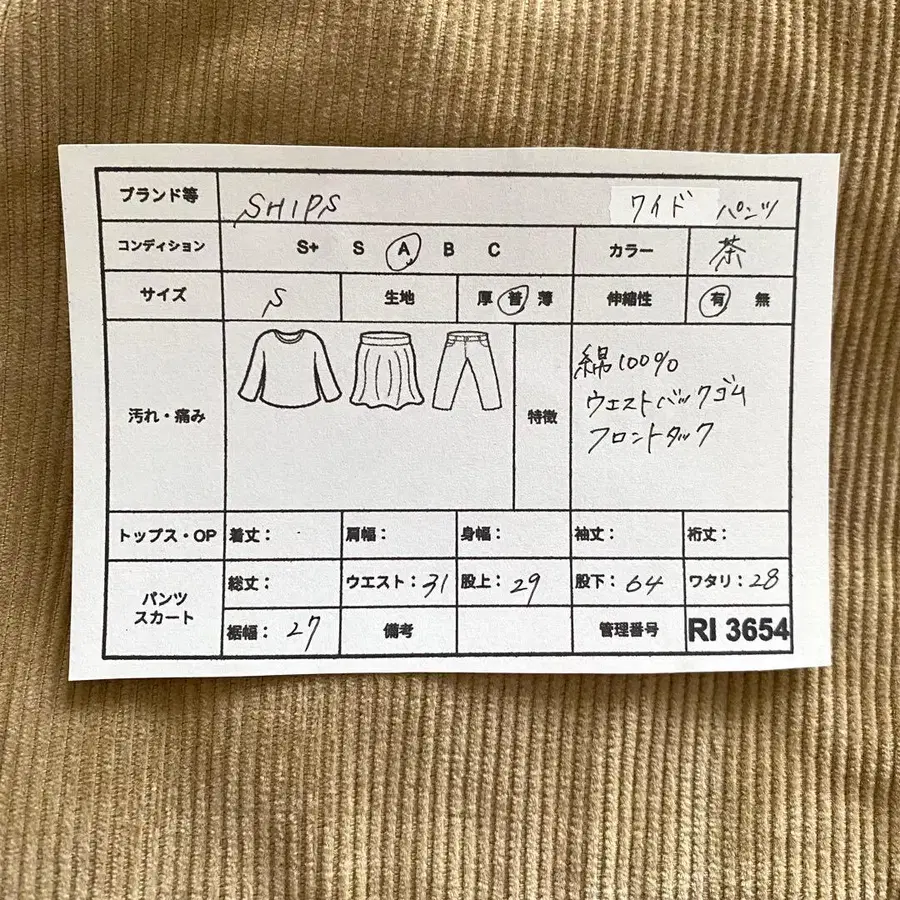 ブランド等 SHIPS ワイド パンツ
コンディション S+ S A B C カラー 茶
サイズ S 生地 厚 普 薄 伸縮性 有 無
汚れ・痛み 特徴
綿100%
ウエストバックゴム
フロントタック
トップス・OP 着丈: 肩幅: 身幅: 袖丈: 裄丈:
パンツ
スカート
総丈: ウエスト:31 股上:29 股下:64 ワタリ:28
裾幅:27 備考 管理番号 RI 3654